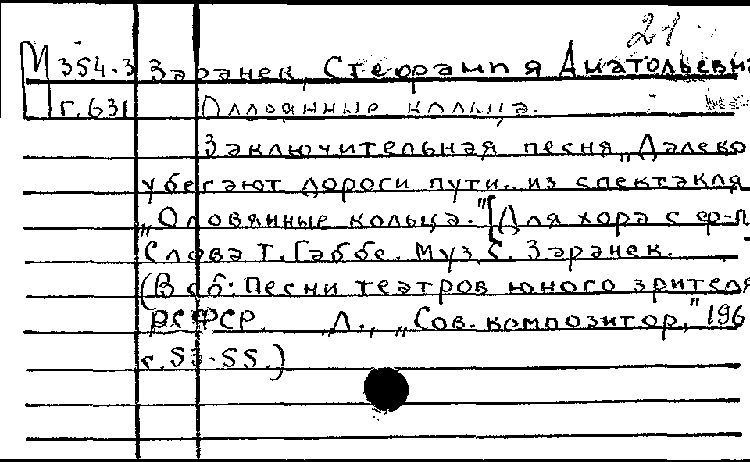 21
М 354.3 Заранек, Стефания Анатольевна
г.631 Оловянные кольца.
Заключительная песня „Далеко
убегают дороги пути„ из спектакля
„Оловянные кольца." [Для хора с ф-п
Слова Т. Габбе. Муз. С. Заранек.
(В сб: Песни театров юного зрителя
РСФСР. Л., „Сов. композитор," 196
с. 53-55.)